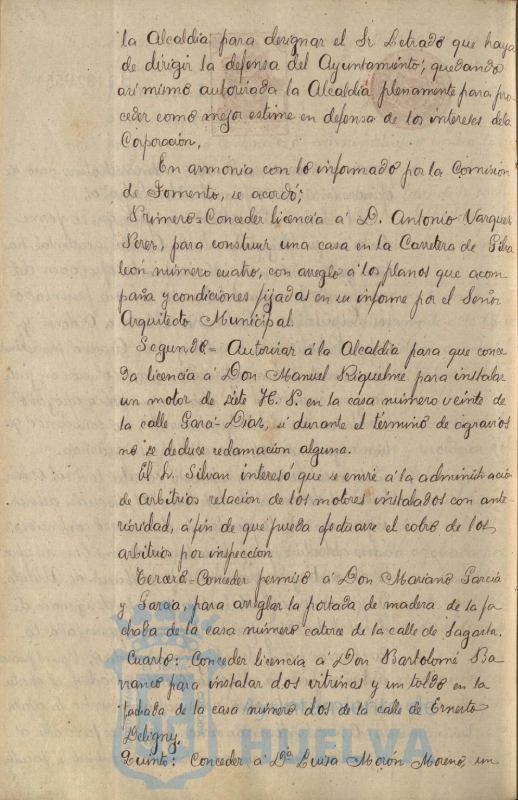 la Alcaldia para designar el Sr. Letrado que haya
de dirigir la defensa del Ayuntamiento; quedando
asi mismo autorizada la Alcaldia plenamente para pro
ceder como mejor estime en defensa de los intereses de la
Corporación,
En armonia con lo informado por la Comision
de Fomento, se acordó;
Primero= Conceder licencia á D. Antonio Vazquez
Perez, para construir una casa en la Carretera de Gibra
león número cuatro, con arreglo á los planos que acom
paña y condiciones fijadas en su informe por el Señor
Arquitecto Municipal.
Segundo= Autorizar á la Alcaldia para que conce
da licencia á Don Manuel Riquelme para instalar
un motor de siete H. P. en la casa número veinte de
la calle Garci-Diaz, si durante el término de agravios
no se deduce reclamacion alguna.
El Sr. Silvan interesó que se envie á la administración
de Arbitrios relacion de los motores instalados con ante-
rioridad, á fin de que pueda efectuarse el cobro de los
arbitrios por inspección
Tercero-Conceder permiso á Don Mariano Garcia
y Garcia, para arreglar la portada de madera de la fa
chada de la casa número catorce de la calle de Sagasta.
Cuarto: Conceder licencia á Don Bartolomé Ba
rranco para instalar dos vitrinas y un toldo en la
fachada de la casa número dos de la calle de Ernesto
Deligny.
HUELVA
Quinto: Conceder á Dª Luisa Morón Moreno, un